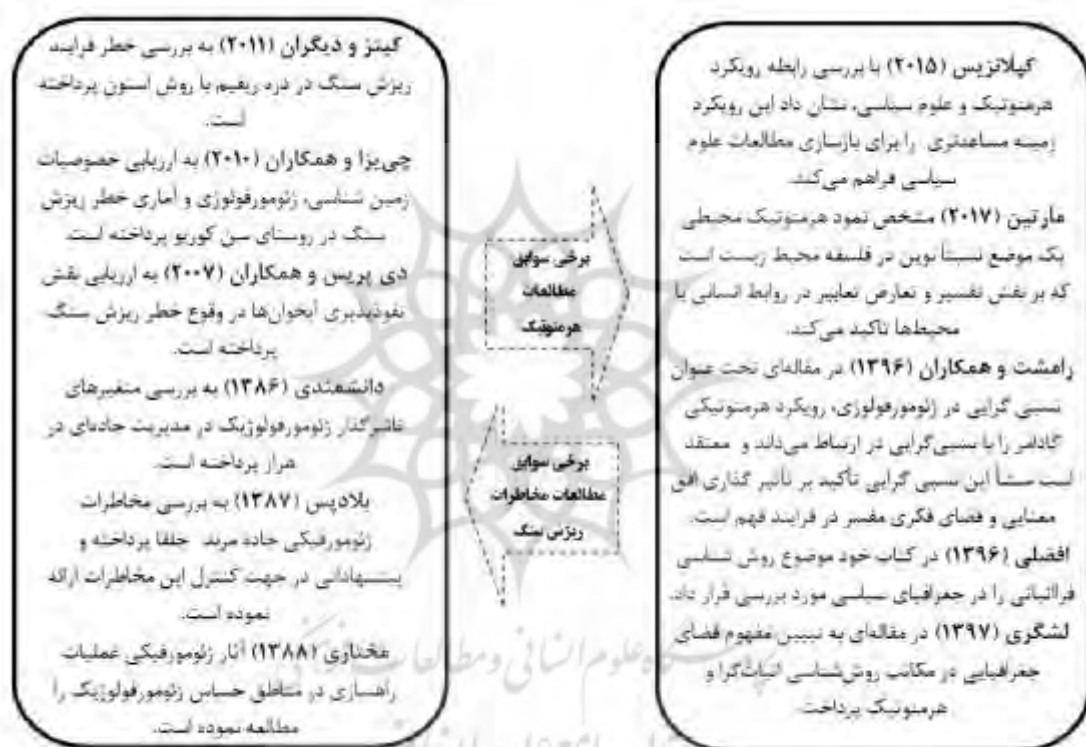 کیلانزیس (۲۰۱۵) با بررسی رابطه رویکرد
هرمنوتیک و علوم سیاسی، نشان داد این رویکرد
زمینه مساعدتری را برای بازسازی مطالعات علوم
سیاسی فراهم می‌کند.
مارتین (۲۰۱۷) مشخص نمود هرمنوتیک محیطی
یک موضع نسبتاً نوین در فلسفه محیط زیست است
که بر نقش تفسیر و تعارض تعابیر در روابط انسانی با
محیط‌ها تاکید می‌کند.
رامشت و همکاران (۱۳۹۶) در مقاله‌ای تحت عنوان
نسبی گرایی در ژئومورفولوژی، رویکرد هرمنوتیکی
گادامر را با نسبی‌گرایی در ارتباط می‌داند و معتقد
است منشأ این نسبی گرایی تأکید بر تأثیر گذاری افق
معنایی و فضای فکری مفسر در فرایند فهم است.
افضلی (۱۳۹۶) در کتاب خود موضوع روش شناسی
فرااثباتی را در جغرافیای سیاسی مورد بررسی قرار داد.
لشگری (۱۳۹۷) در مقاله‌ای به تبیین مفهوم فضای
جغرافیایی در مکاتب روش‌شناسی اثبات‌گرا و
هرمنوتیک پرداخت.
برخی سوابق
مطالعات
هرمنوتیک
برخی سوابق
مطالعات مخاطرات
ریزش سنگ
کینز و دیگران (۲۰۱۱) به بررسی خطر فرایند
ریزش سنگ در دره ریفیم با روش استون پرداخته
است.
چی‌یزا و همکاران (۲۰۱۰) به ارزیابی خصوصیات
زمین شناسی، ژئومورفولوژی و آماری خطر ریزش
سنگ در روستای سن کوربو پرداخته است.
دی پریس و همکاران (۲۰۰۷) به ارزیابی نقش
نفوذپذیری آبخوان‌ها در وقوع خطر ریزش سنگ
پرداخته است.
دانشمندی (۱۳۸۶) به بررسی متغیرهای
تاثیرگذار ژئومورفولوژیک در مدیریت جاده‌ای در
هراز پرداخته است.
بلادپس (۱۳۸۷) به بررسی مخاطرات
ژئومورفیکی جاده مرند جلفا پرداخته و
پیشنهاداتی در جهت کنترل این مخاطرات ارائه
نموده است.
مختاری (۱۳۸۸) آثار ژئومورفیکی عملیات
راهسازی در مناطق حساس ژئومورفولوژیک را
مطالعه نموده است.
علوم انسانی و مطالعات فرهنگی
جامع علوم انسانی